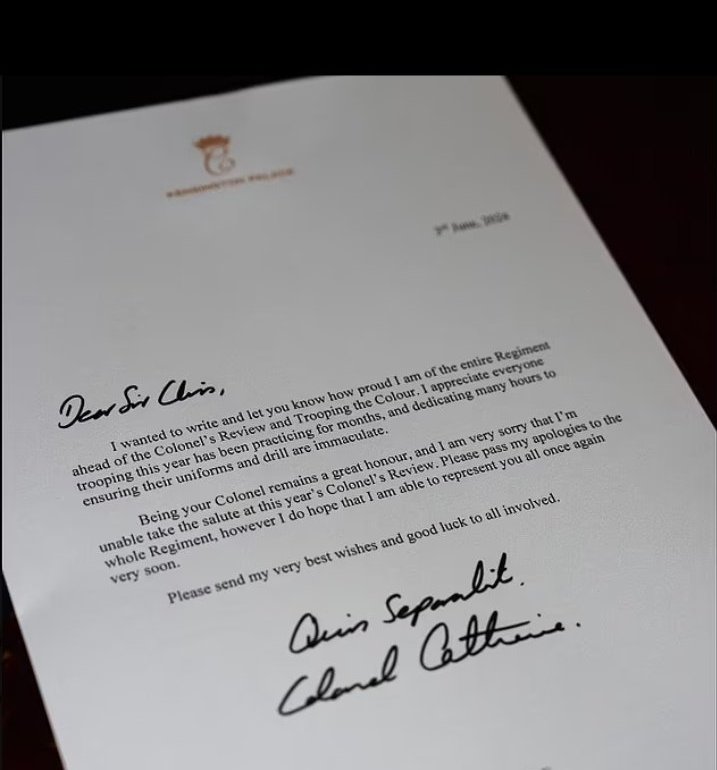 KENSINGTON PALACE
3rd June, 2024
Dear Sir Chris,
I wanted to write and let you know how proud I am of the entire Regiment
ahead of the Colonel's Review and Trooping the Colour. I appreciate everyone
trooping this year has been practicing for months, and dedicating many hours to
ensuring their uniforms and drill are immaculate.
Being your Colonel remains a great honour, and I am very sorry that I'm
unable take the salute at this year's Colonel's Review. Please pass my apologies to the
whole Regiment, however I do hope that I am able to represent you all once again
very soon.
Please send my very best wishes and good luck to all involved.
Quis Separabit.
Colonel Catherine.